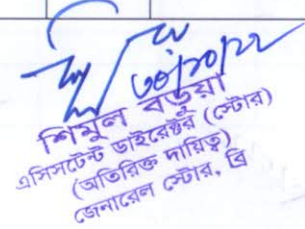 ৩০/১০/২২
শিমুল বড়ুয়া
এসিসটেন্ট ডাইরেক্টর (স্টোর)
(অতিরিক্ত দায়িত্ব)
জেনারেল স্টোর, ব্রি